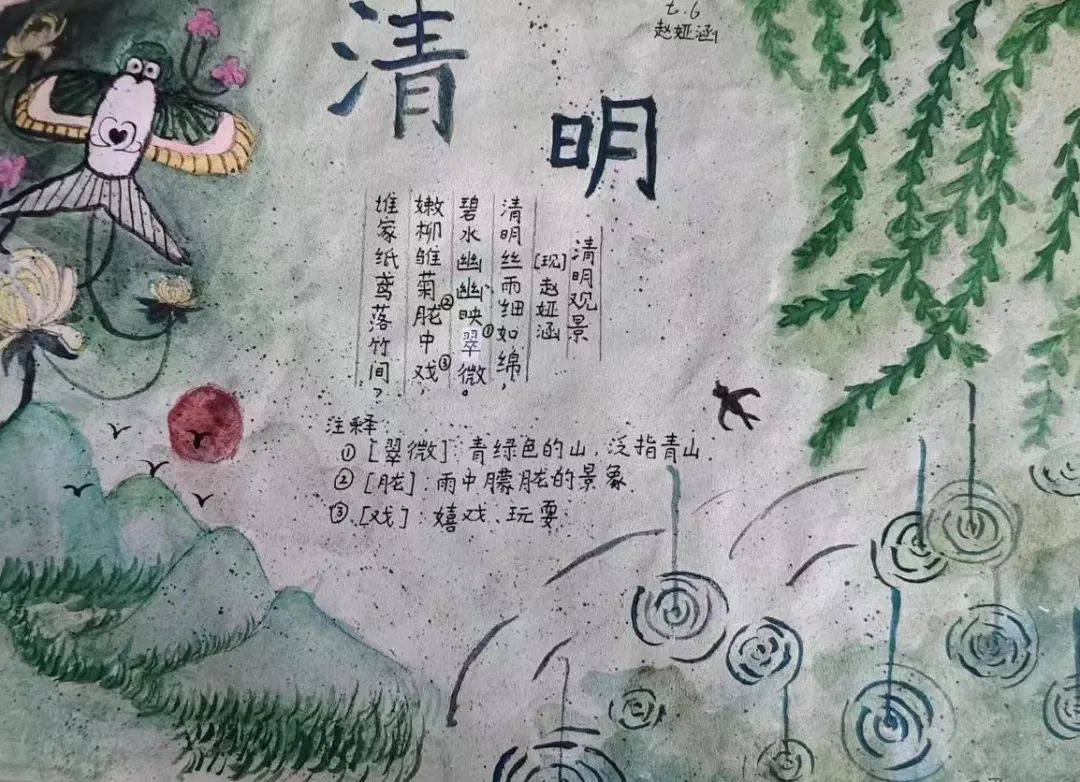 清
明
七.6
赵娅涵
清明观景
[现]赵娅涵
清明丝雨细如绵,
碧水幽幽映翠微①。
嫩柳雏菊胧②中戏③,
堆家纸鸢落竹间?
注释:
①[翠微]:青绿色的山,泛指青山.
②[胧]:雨中朦胧的景象
③[戏]:嬉戏、玩耍